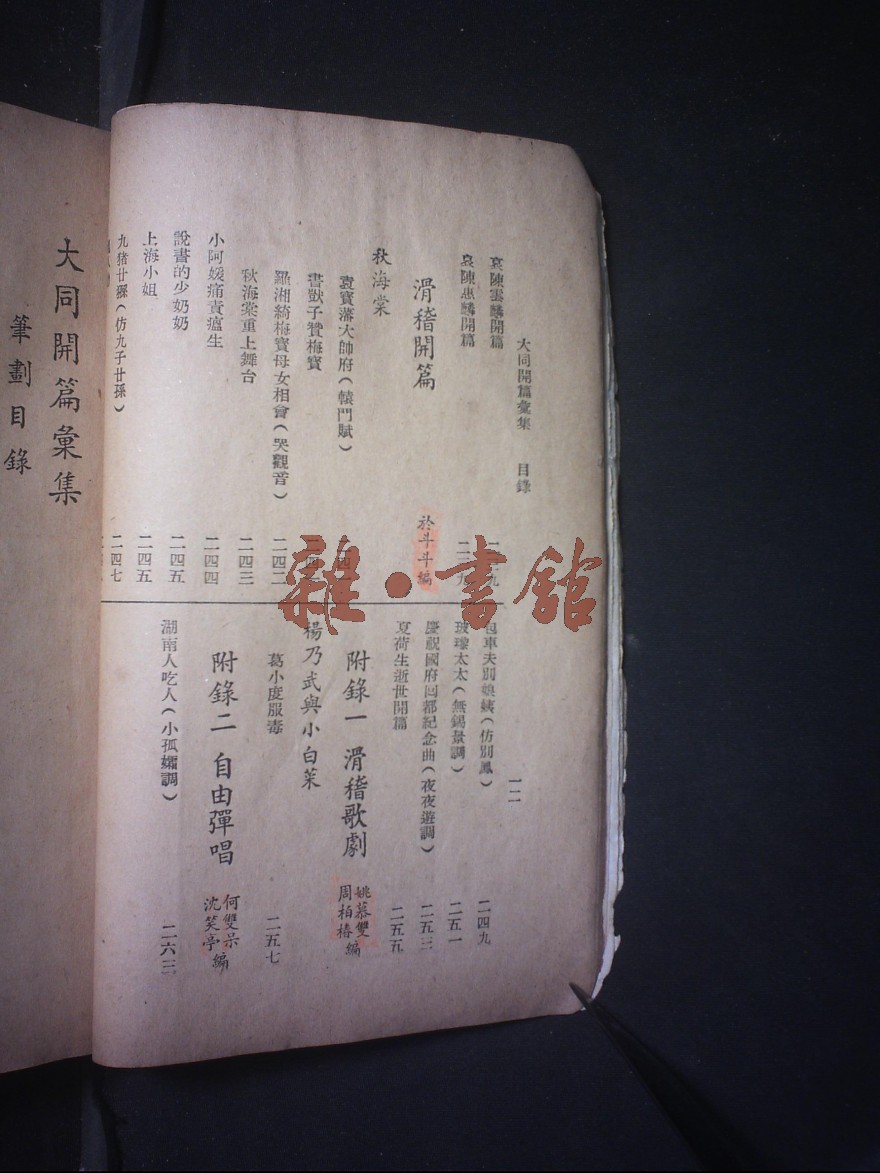 大同開篇彙集 目錄 一二
哀陳雲麟開篇
哀陳惠麟開篇
滑稽開篇 於斗斗編
秋海棠
袁寶藩大帥府(轅門賦)
書獃子贊梅寶
羅湘綺梅寶母女相會(哭觀音) 二四二
秋海棠重上舞台 二四三
小阿媛痛責瘟生 二四四
說書的少奶奶 二四五
上海小姐 二四五
九猪廿猓(仿九子廿孫) 二四七
包車夫別姨(仿別鳳) 二四九
玻璃太太(無錫景調) 二五一
慶祝國府囘都紀念曲(夜夜遊調) 二五三
夏荷生逝世開篇 二五五
附錄一 滑稽歌劇 姚慕雙 周柏椿 編
楊乃武與小白菜
葛小度服毒 二五七
附錄二 自由彈唱 何雙呆 沈笑亭 編
湖南人吃人(小孤孀調) 二六三
大同開篇彙集
筆劃目錄
雜·書館